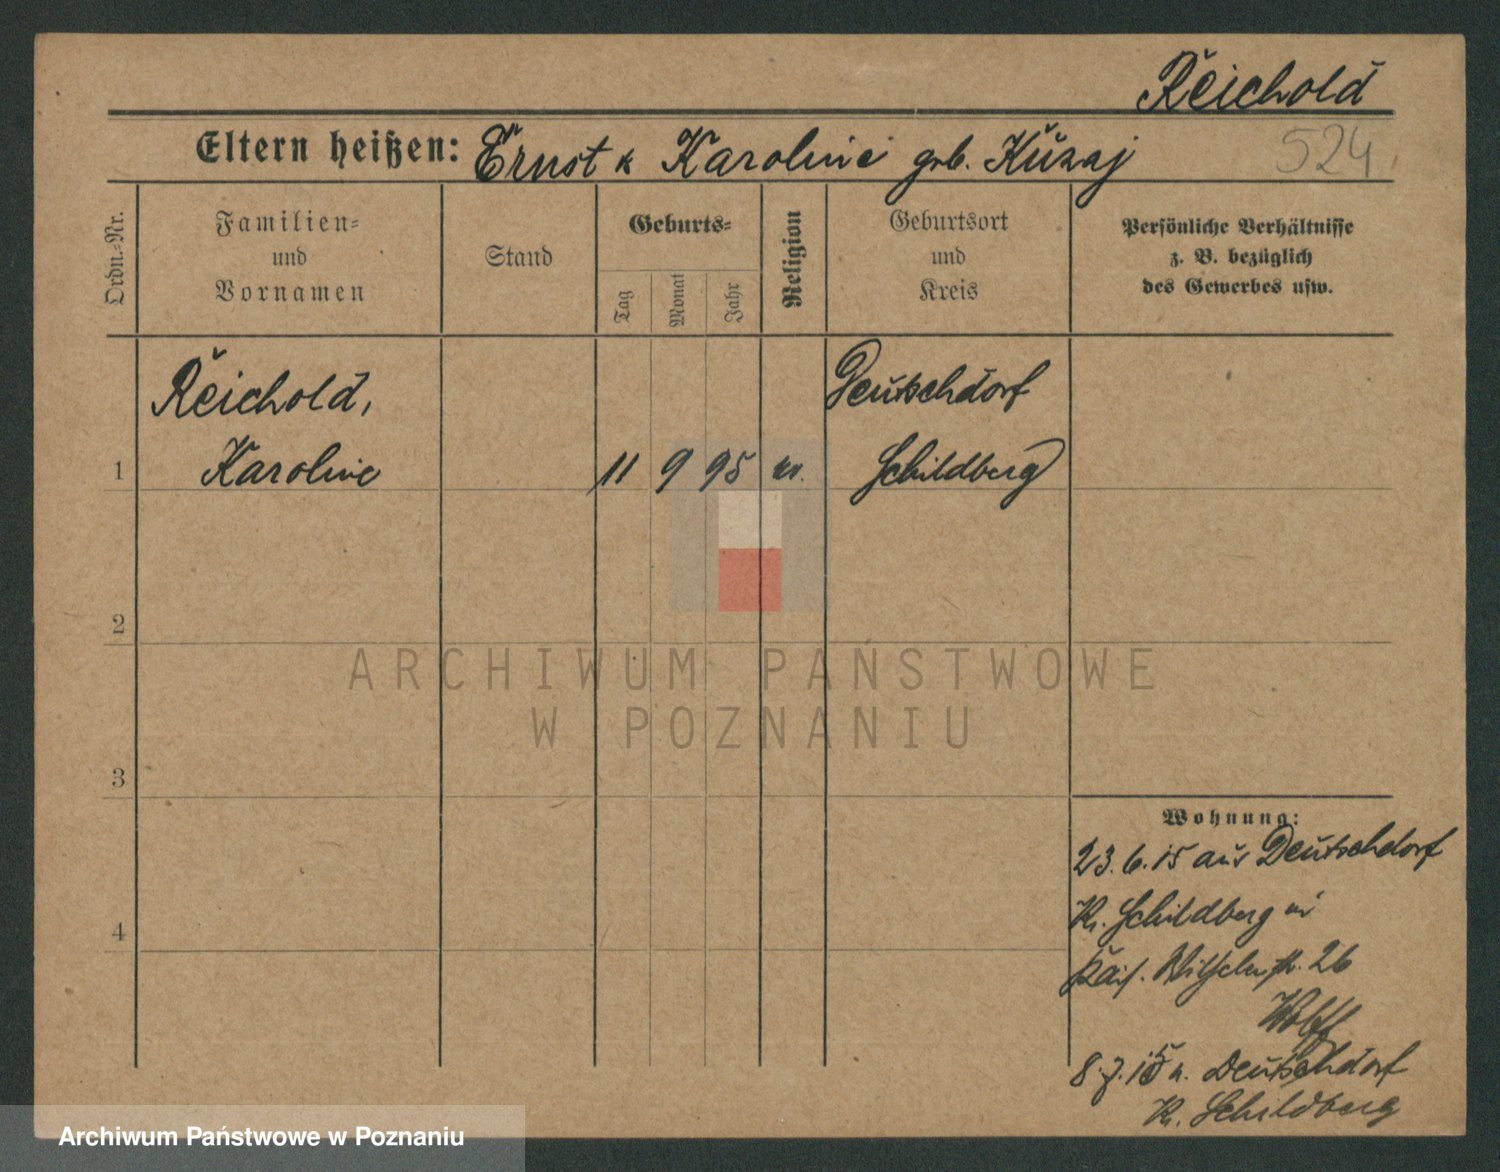 Reichold
Eltern heißen: Ernst & Karoline geb. Kuzaj
524
Ordn.-Nr.
Familien-
und
Vornamen
Stand
Geburts-
Tag
Monat
Jahr
Religion
Geburtsort
und
Kreis
Persönliche Verhältnisse
z. B. bezüglich
des Gewerbes usw.
1
Reichold,
Karoline
11 9 95 ev.
Deutschdorf
Schildberg
2
3
4
Wohnung:
23.6.15 aus Deutschdorf
Kr. Schildberg in
Kais. Wilhelmstr. 26
Wolff
8.7.15 n. Deutschdorf
Kr. Schildberg
ARCHIWUM PAŃSTWOWE
W POZNANIU
Archiwum Państwowe w Poznaniu